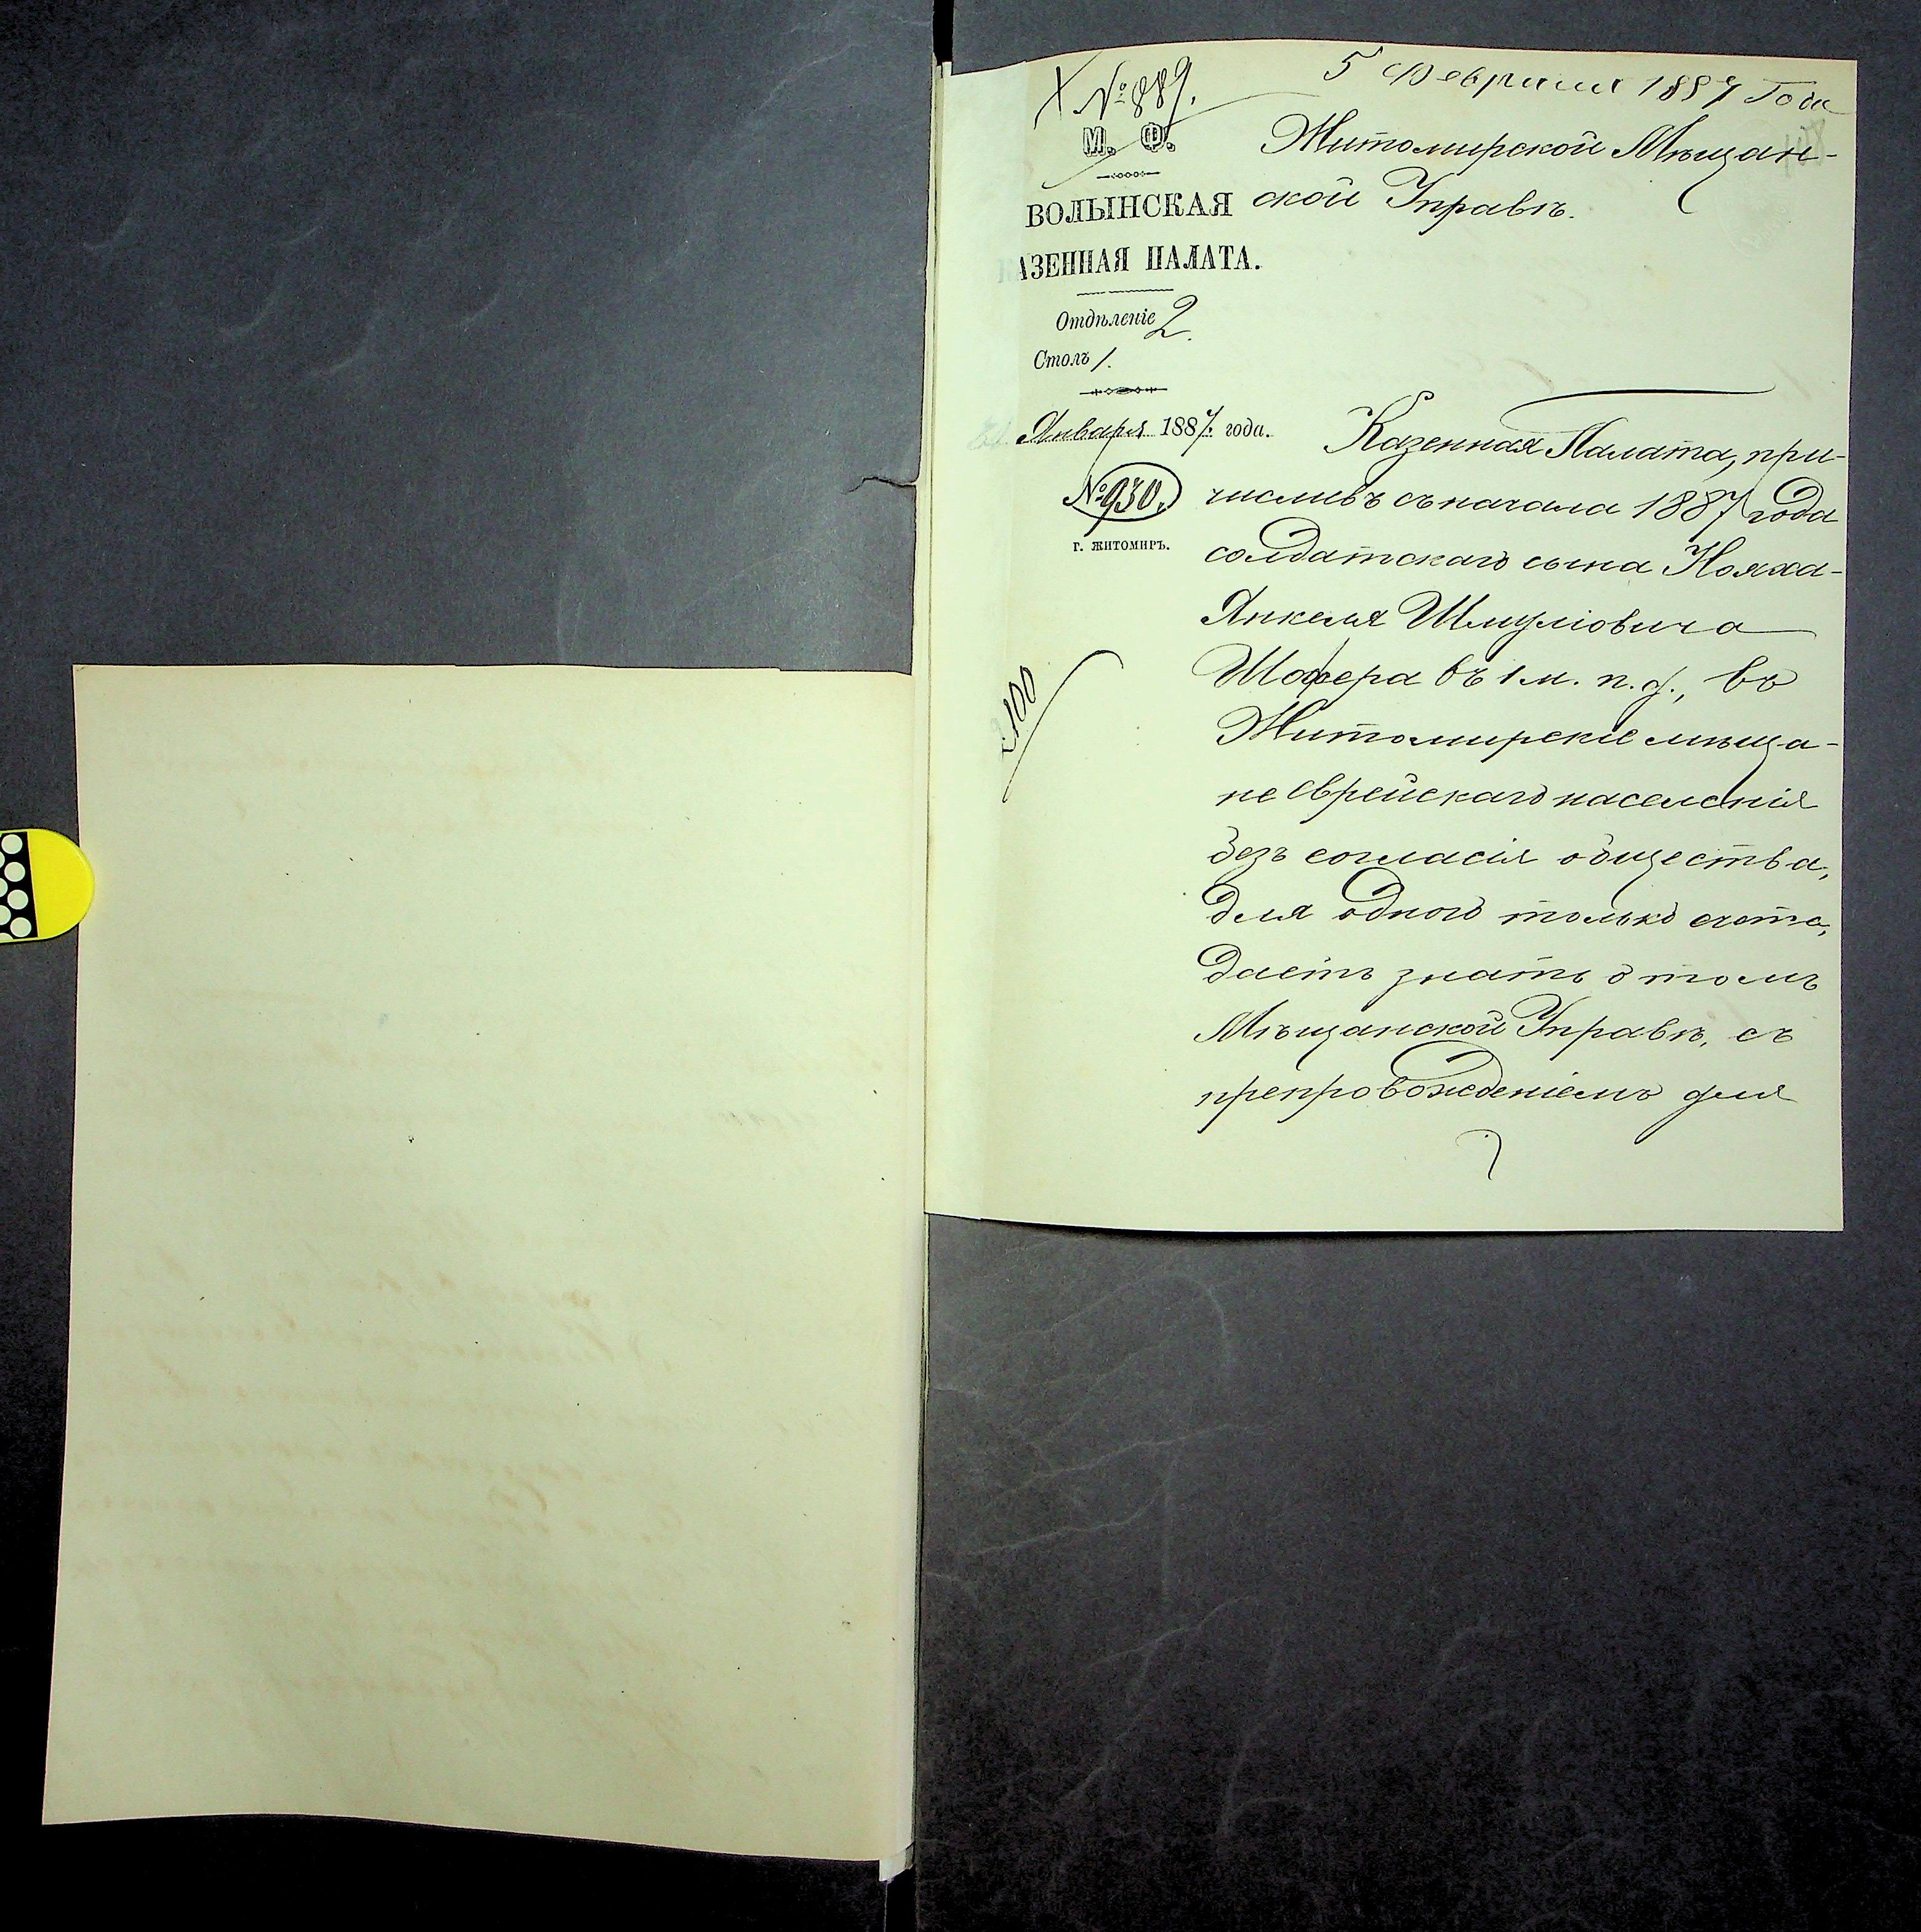 № 889.
5 Февраля 1887 Года
М. Ф.
ВОЛЫНСКАЯ
АЗЕННАЯ ПАЛАТА.
Отдѣленіе 2.
Столъ 1.
Января 1887 года.
№ 930.
г. ЖИТОМИРЪ.
Житомирской Мѣщан-
ской Управѣ.
Казенная Палата, при-
числивъ съ начала 1887 года
солдатскаго сына Нояха-
Янкеля Шмуліовича
Шафера въ 1 м. п. д., въ
Житомирскіе мѣща-
не еврейскаго населенія
безъ согласія общества,
для одного только счета,
даетъ знать о томъ
Мѣщанской Управѣ, съ
препровожденіемъ для